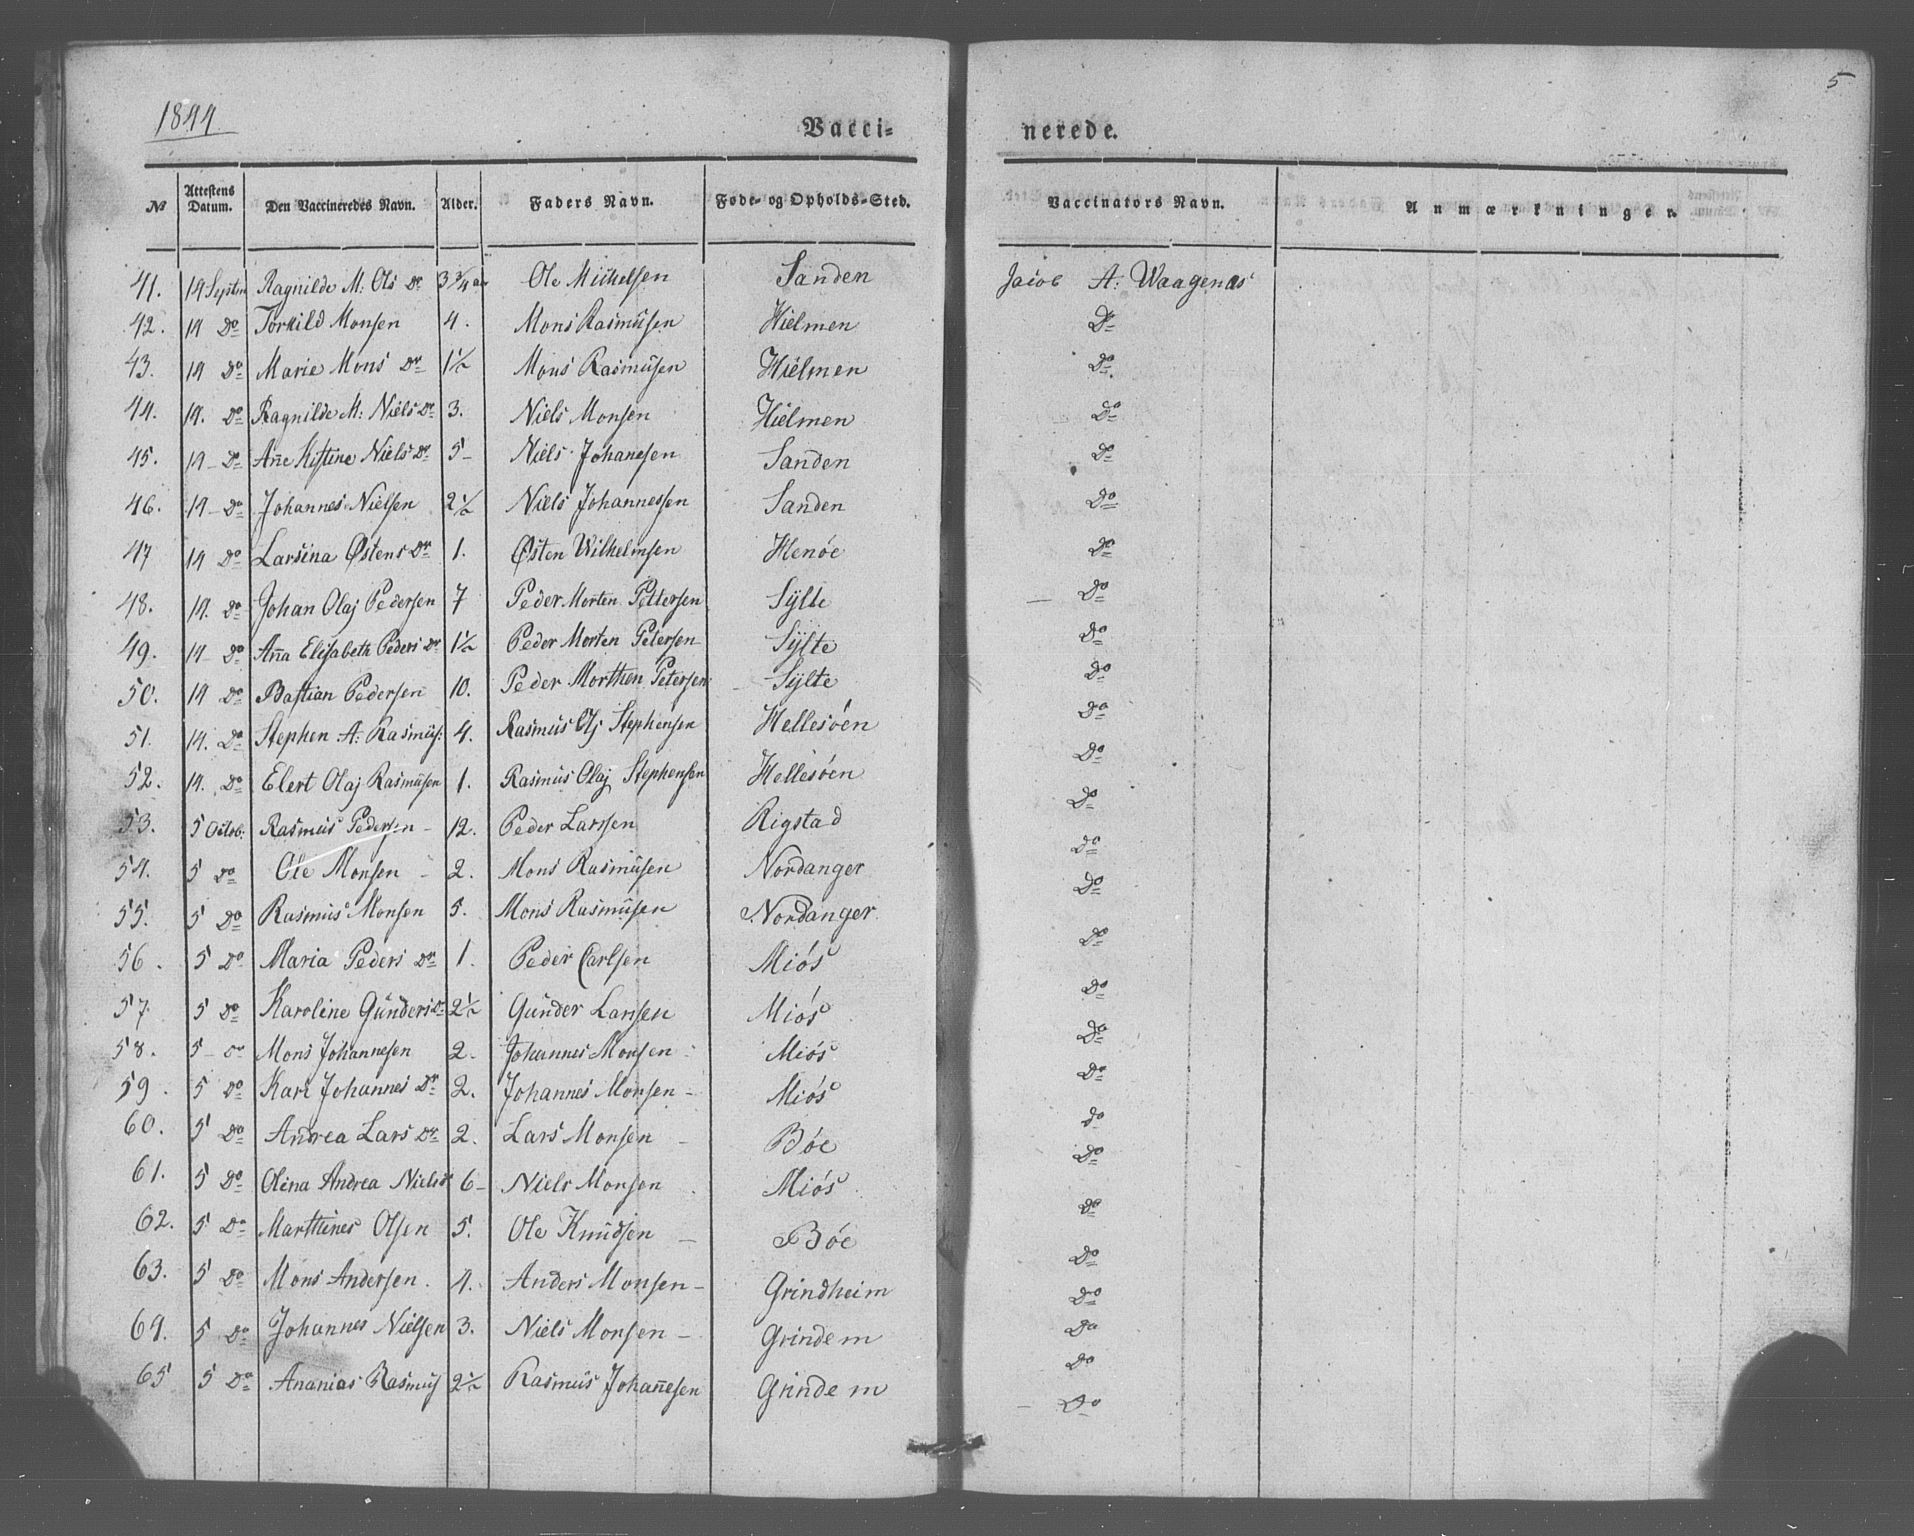 1844
5
Vacci- nerede.
No Attestens Datum. Den Vaccineredes Navn. Alder. Faders Navn. Føde- og Opholds-Sted. Vaccinators Navn. Anmærkninger.
41. 14 Septem Ragnilde M: Ols Dr 3 3/4 aar Ole Michelsen Sanden Jacob A: Waagenæs
42. 14 Do Torkild Monsen 4. Mons Rasmüsen Hielmen Do
43. 14 Do Marie Mons Dr 1 1/2 Mons Rasmüsen Hielmen Do
44. 14. Do Ragnilde M: Niels Dr 3. Niels Monsen Hielmen Do
45. 14 - Do Añe Kistine Niels Dr 5 - Niels Johanesen Sanden Do
46. 14 - Do Johannes Nielsen 2 1/2 Niels Johannessen Sanden Do
47 14 Do Larsina Østens Dr 1. Østen Wilhelmsen Henöe Do
48. 14. Do Johan Olaj Pedersen 7 Peder Morten Pettersen Sÿlte Do
49. 14 - Do Aña Elisabeth Peders Dr 1 1/2 Peder Morten Petersen Sÿlte Do
50. 14 Do Bastian Pedersen 10. Peder Morthen Petersen Sÿlte Do
51. 14. Do Stephen A: Rasmüs: 4. Rasmus Olj Stephensen Hellesöen Do
52. 14. Do Elert Olaj Rasmüsen 1. Rasmus Olaj Stephensen Hellesöen Do
53. 5 Octob. Rasmus Pedersen - 12. Peder Larssen Rigstad Do
54. 5 Do Ole Monsen - 2. Mons Rasmüsen Nordanger Do
55. 5 Do Rasmus Monsen 5. Mons Rasmüsen Nordanger Do
56. 5 Do Maria Peders Dr 1. Peder Carlsen Miös Do
57. 5 Do Karoline Günders Dr 2 1/2 Günder Larsen Miös Do
58. 5 - Do Mons Johannesen 2. Johannes Monsen - Miös Do
59. 5 Do Kari Johannes Dr 2. Johannes Monsen - Miös Do
60. 5 Do Andrea Lars Dr 2. Lars Monsen - Böe Do
61. 5 Do Olina Andrea Niels 6 - Niels Monsen Miös Do
62. 5 Do Marthines Olsen 5. Ole Knudsen - Böe Do
63. 5 Do Mons Andersen. 4. Anders Monsen - Grindheim Do
64. 5 Do Johannes Nielsen 3. Niels Monsen - Grindem Do
65 5 Do Ananias Rasmus 2 1/2 Rasmus Johañesen Grindem Do